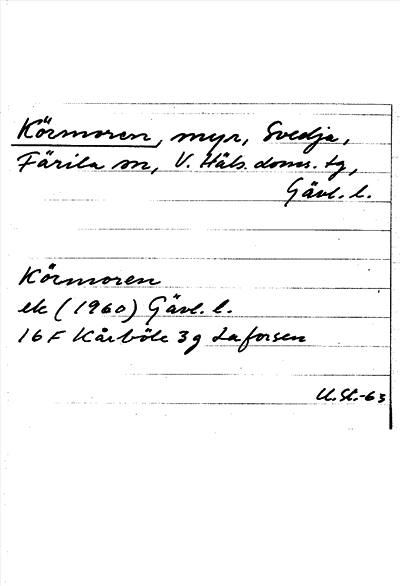 Körmoren, myr, Svedja,
Färila sn, V. Häls. doms. tg,
Gävl. l.
Körmoren
ek (1960) Gävl. l.
16F Kårböle 3g Laforsen
U.St.-63